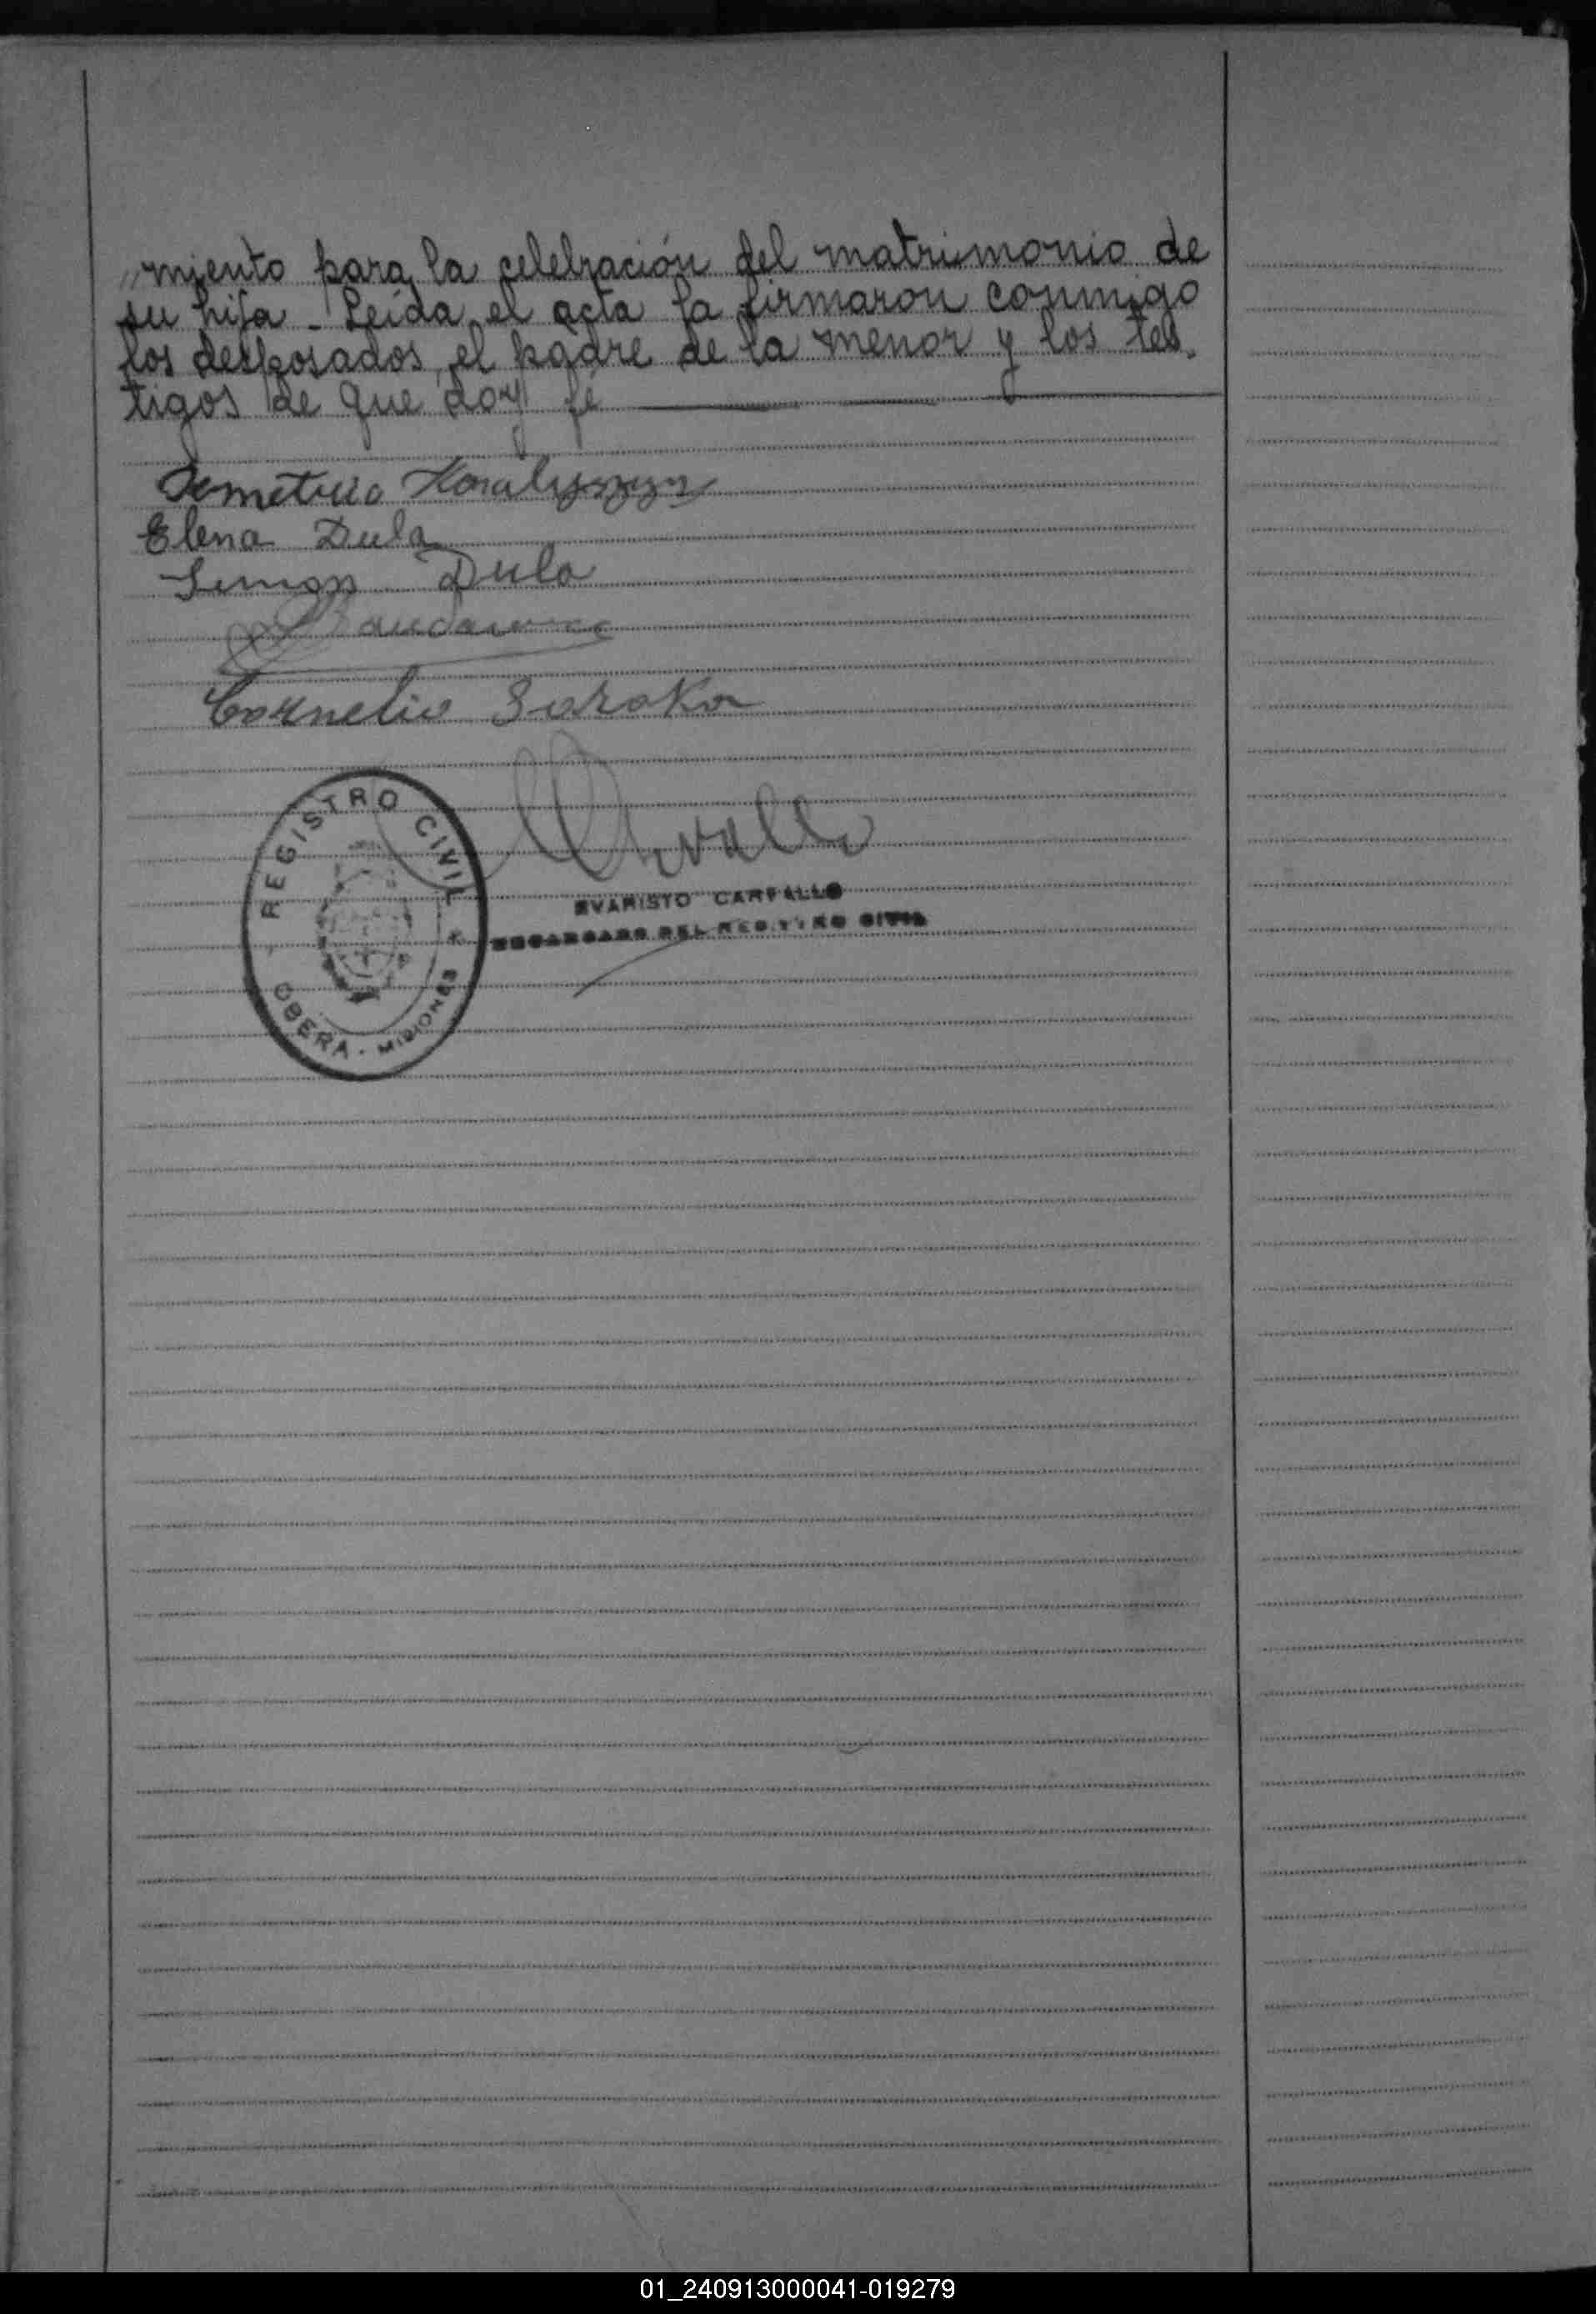 miento para la celebración del matrimonio de
su hija - Leída el acta la firmaron conmigo
los desposados, el padre de la menor y los tes-
tigos de que doy fé
Demetrio
Elena Dula
Simon Dula
Cornelio Soroka
REGISTRO CIVIL
OBERA - MISIONES
EVARISTO CARVALLO
ENCARGADO DEL REGISTRO CIVIL
01_240913000041-019279